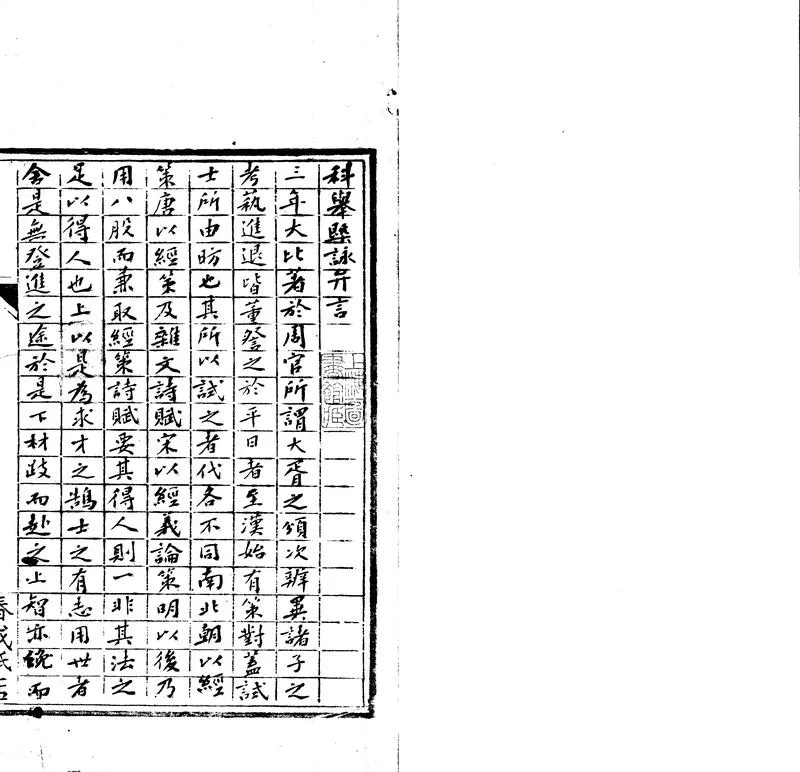 科舉槩詠弁言
三年大比著於周官所謂大胥之頒次辨異諸子之
考蓺進退皆董詧之於平日者至漢始有策對蓋試
士所由昉也其所以試之者代各不同南北朝以經
策唐以經策及雜文詩賦宋以經義論策明以後乃
用八股而兼取經策詩賦要其得人則一非其法之
足以得人也上以是為求才之鵠士之有志用世者
舍是無登進之途於是下材跂而赴之上智亦俛而